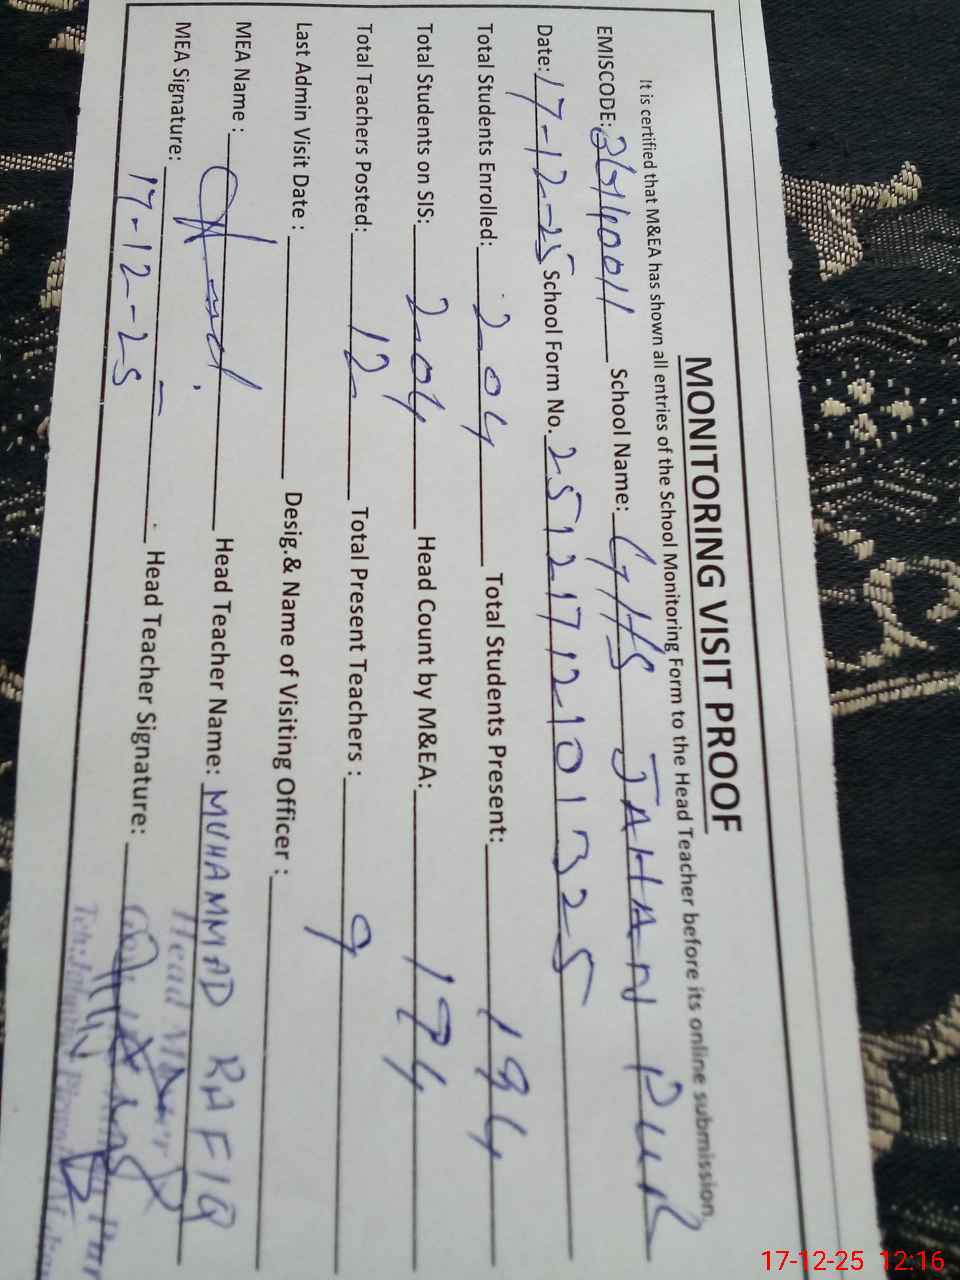 MONITORING VISIT PROOF
It is certified that M&EA has shown all entries of the School Monitoring Form to the Head Teacher before its online submission.
EMISCODE: School Name: GHS JAHAN PUR
Date: 17-12-25 School Form No. 25121712101325
Total Students Enrolled: 204 Total Students Present: 194
Total Students on SIS: 204 Head Count by M&EA: 194
Total Teachers Posted: 12 Total Present Teachers : 9
Last Admin Visit Date : Desig.& Name of Visiting Officer :
MEA Name : Head Teacher Name: MUHAMMAD RAFIQ
MEA Signature: Head Teacher Signature:
17-12-25
Head
17-12-25 12:16